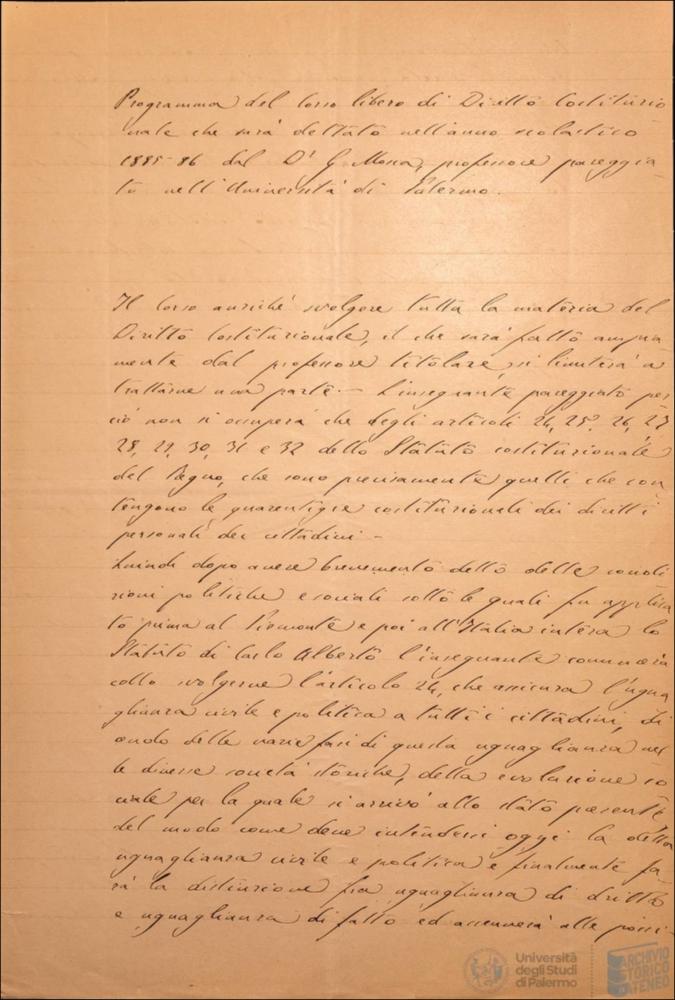 Programma del corso libero di Diritto Costituzio
nale che sarà dettato nell'anno scolastico
1885-86 dal Dr G Mosca, professore pareggia
to nell'Università di Palermo.
Il corso anziché svolgere tutta la materia del
Diritto Costituzionale, il che sarà fatto ampia
mente dal professore titolare, si limiterà a
trattarne una parte. — L'insegnante pareggiato per
ciò non si occuperà che degli articoli 24, 25, 26, 27
28, 29, 30, 31 e 32 dello Statuto costituzionale
del Regno, che sono precisamente quelli che con
tengono le guarentigie costituzionali dei diritti
personali dei cittadini —
Quindi dopo avere brevemente detto delle condi
zioni politiche e sociali sotto le quali fu applica
to prima al Piemonte e poi all'Italia intera lo
Statuto di Carlo Alberto l'insegnante comincerà
collo svolgerne l'articolo 24, che assicura l'ugua
glianza civile e politica a tutti i cittadini, di
cendo delle varie fasi di questa uguaglianza nel
le diverse società storiche, della evoluzione so
ciale per la quale si arrivò allo stato presente
del modo come deve intendersi oggi la detta
uguaglianza civile e politica e finalmente fa
rà la distinzione fra uguaglianza di dritto
e uguaglianza di fatto ed accennerà alle possi-
Università
degli Studi
di Palermo
ARCHIVIO
STORICO
ATENEO